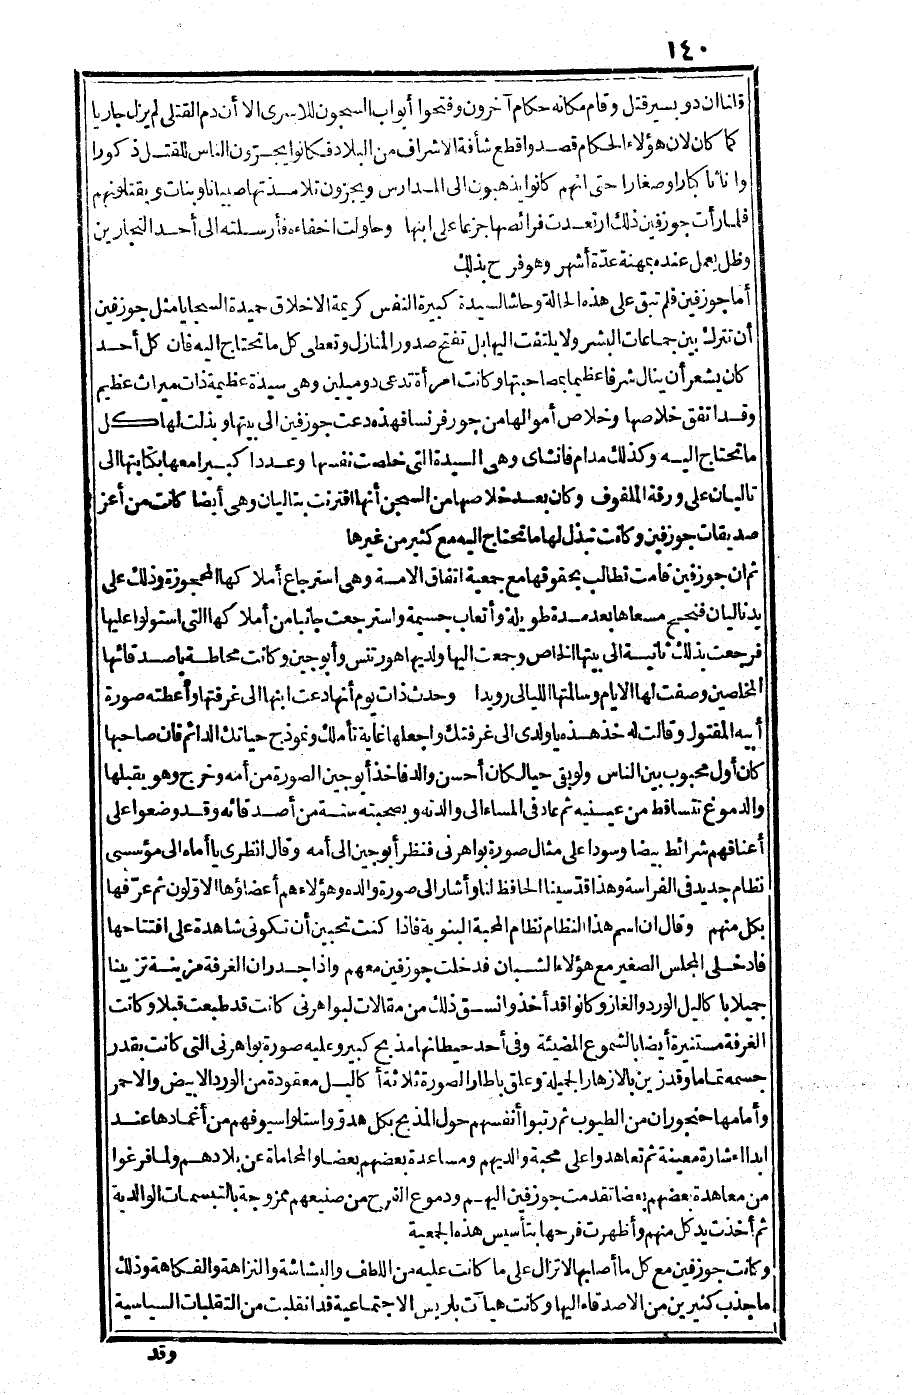 ١٤٠
قلنا ان دوبسير قتل وقام مكانه حكام آخرون وفتحوا أبواب السجون للاسرى الا أن دم القتلى لم يزل جاريا
كما كان لان هؤلاء الحكام قصدوا قطع شأفة الاشراف من البلاد فكانوا يجرّون الناس للقتل ذكورا
واناثا كبارا وصغارا حتى انهم كانوا يذهبون الى المدارس ويجرون تلامذتها صبيانا وبنات ويقتلونهم
فلما رأت جوزفين ذلك ارتعدت فرائصها جزعا على ابنها وحاولت اخفاءه فأرسلته الى أحد النجارين
وظل يعمل عنده بمهنة عدّة أشهر وهو فرح بذلك
أما جوزفين فلم تبق على هذه الحالة وحاشا لسيدة كبيرة النفس كريمة الاخلاق حميدة السجايا مثل جوزفين
أن تترك بين جماعات البشر ولا يلتفت اليها بل تفتح صدور المنازل وتعطى كل ما تحتاج اليه فان كل أحد
كان يشعر أن ينال شرفا عظيما بمصاحبتها وكانت امرأة تدعى دوميلين وهى سيدة عظيمة ذات ميراث عظيم
وقد اتفق خلاصها وخلاص أموالها من جور فرنسا فهذه دعت جوزفين الى بيتها وبذلت لها كل
ما تحتاج اليه وكذلك مدام فانتاى وهى السيدة التى خلصت نفسها وعددا كبيرا معها بكتابتها الى
تاليان على ورقة الملفوف وكان بعد خلاصها من السجن أنها اقترنت بتاليان وهى أيضا كانت من أعز
صديقات جوزفين وكانت تبذل لها ما تحتاج اليه مع كثير من غيرها
ثم ان جوزفين قامت تطالب بحقوقها مع جمعية اتفاق الامة وهى استرجاع أملاكها المحجوزة وذلك على
يد تاليان فنجح مسعاها بعد مدة طويلة وأتعاب جسيمة واسترجعت جانبا من أملاكها التى استولوا عليها
فرجعت بذلك ثانية الى بيتها الخاص وجمعت اليها ولديها هورتنس وأبوجين وكانت محاطة باصدقائها
المخلصين وصفت لها الايام وسالمتها الليالى رويدا وحدث ذات يوم أنها دعت ابنها الى غرفتها وأعطته صورة
أبيه المقتول وقالت له خذ هذه يا ولدى الى غرفتك واجعلها غاية تأملك ونموذج حياتك الدائم فان صاحبها
كان أول محبوب بين الناس ولو بقى حيا لكان أحسن والد فاخذ أبوجين الصورة من أمه وخرج وهو يقبلها
والدموع تتساقط من عينيه ثم عاد فى المساء الى والدته وبصحبته ستة من أصدقائه وقد وضعوا على
أعناقهم شرائط بيضا وسودا على مثال صورة بواهرنى فنظر أبوجين الى أمه وقال انظرى يا أماه الى مؤسسى
نظام جديد فى الفراسة وهذا قدّيسنا الحافظ لنا وأشار الى صورة والده وهؤلاء هم أعضاؤها الاوّلون ثم عرّفها
بكل منهم وقال ان اسم هذا النظام نظام المحبة البنوية فاذا كنت تحبين أن تكونى شاهدة على افتتاحها
فادخلى المجلس الصغير مع هؤلاء الشبان فدخلت جوزفين معهم واذا جدران الغرفة مزينة تزيينا
جميلا باكاليل الورد والغار وكانوا قد أخذوا نسق ذلك من مقالات لبواهرنى كانت قد طبعت قبلا وكانت
الغرفة مستنيرة أيضا بالشموع المضيئة وفى أحد حيطانها مذبح كبير وعليه صورة بواهرنى التى كانت بقدر
جسمه تماما وقد زين بالازهار الجميلة وعلق باطار الصورة ثلاثة أكاليل معقودة من الورد الابيض والاحمر
وأمامها حنجوران من الطيوب ثم رتبوا أنفسهم حول المذبح بكل هدوّ واستلوا سيوفهم من أغمادها عند
ابداء اشارة معينة ثم تعاهدوا على محبة والديهم ومساعدة بعضهم بعضا والمحاماة عن بلادهم ولما فرغوا
من معاهدة بعضهم بعضا تقدمت جوزفين اليهم ودموع الفرح من صنيعهم ممزوجة بالتبسمات الوالدية
ثم أخذت بيد كل منهم وأظهرت فرحها بتأسيس هذه الجمعية
وكانت جوزفين مع كل ما أصابها لا تزال على ما كانت عليه من اللطف والبشاشة والنزاهة والفكاهة وذلك
ما جذب كثيرين من الاصدقاء اليها وكانت هيآت باريس الاجتماعية قد انقلبت من التقلبات السياسية
وقد